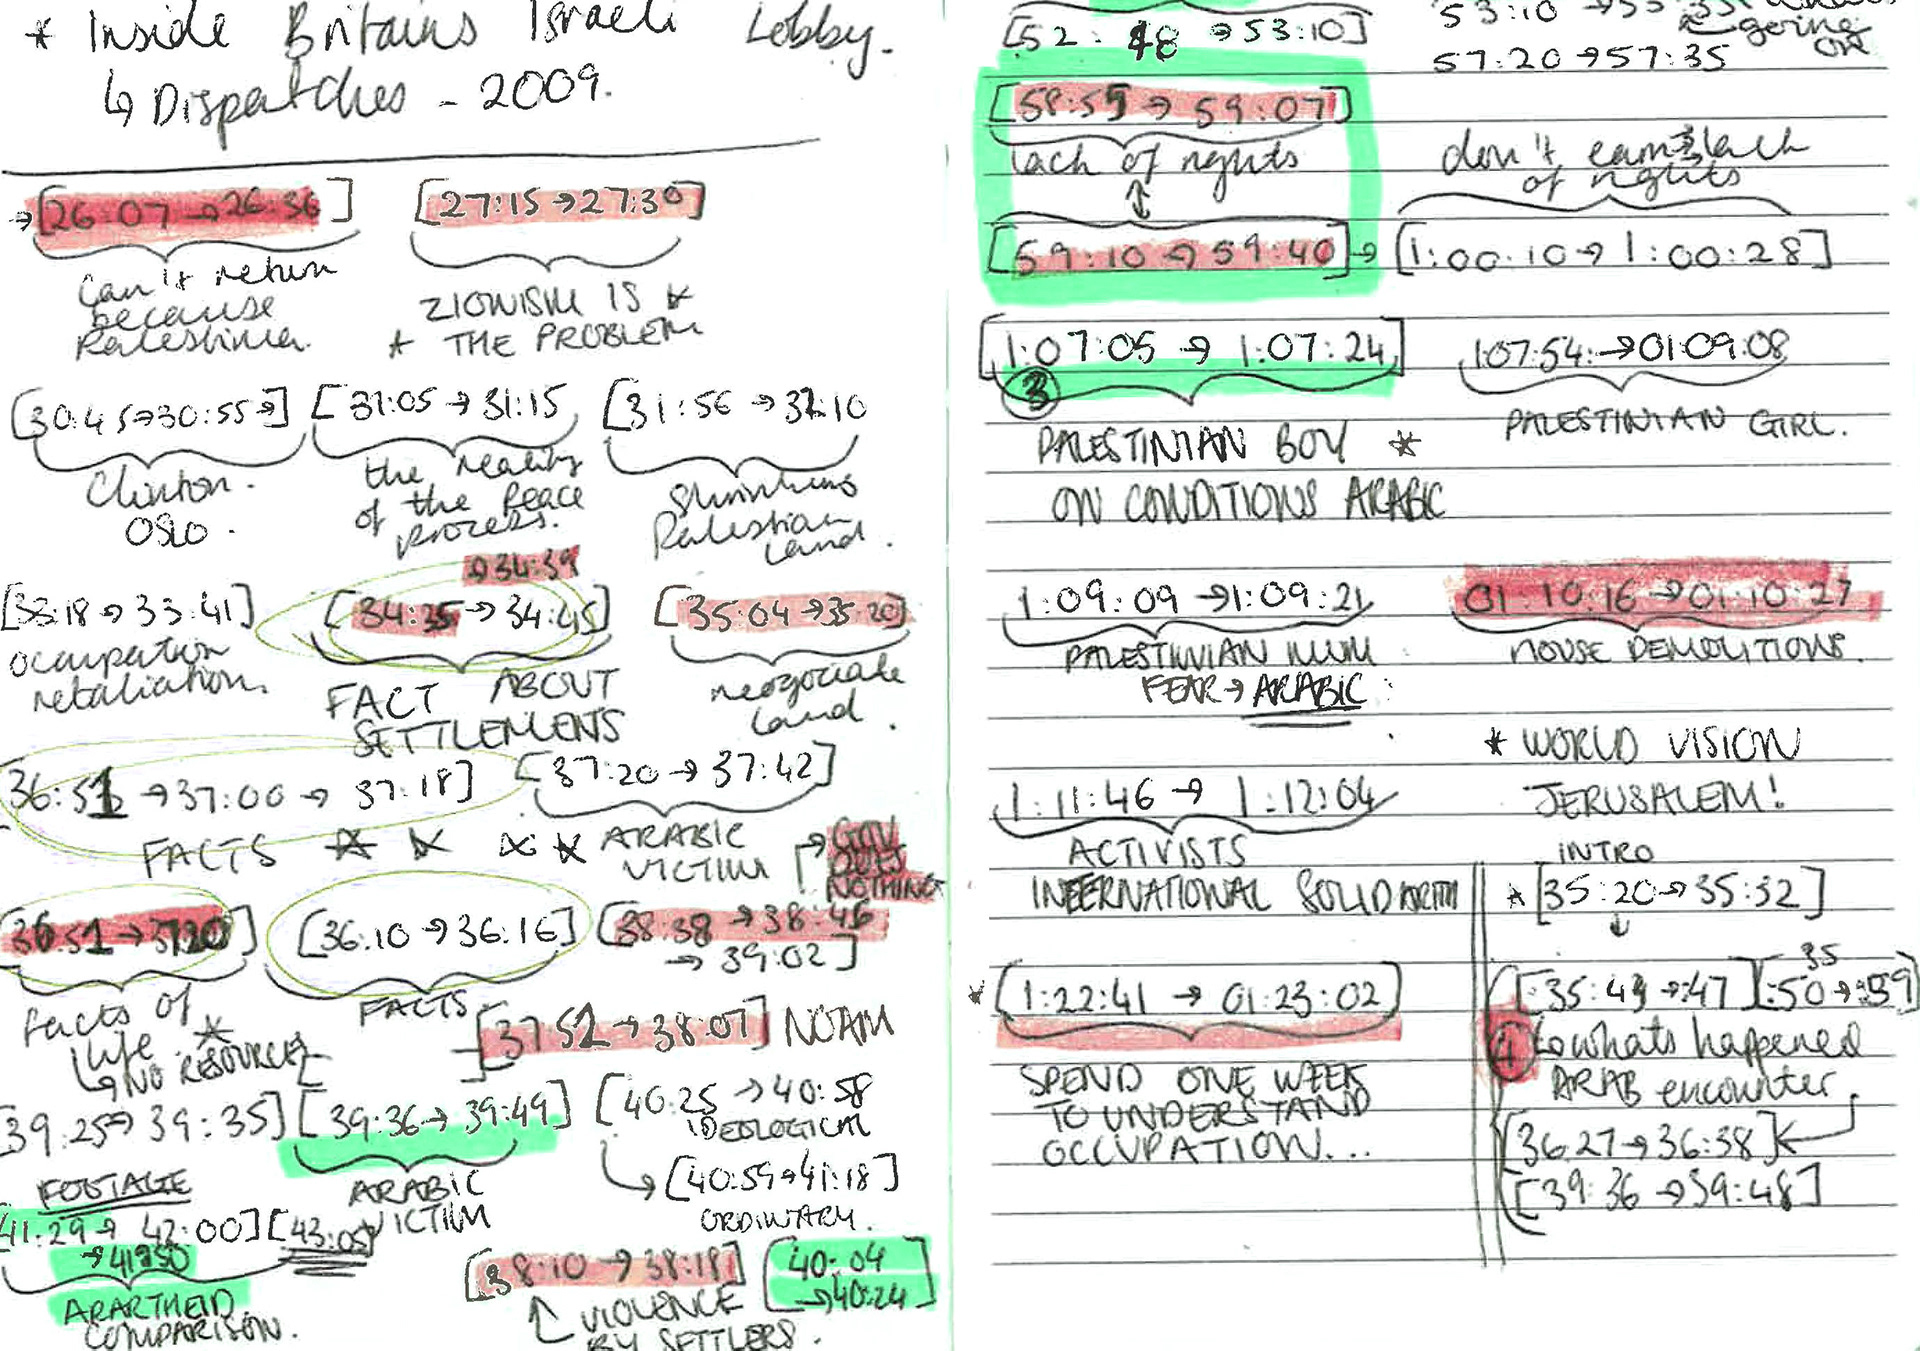 * Inside Britains Israeli Lobby.
↳ Dispatches - 2009.
→ [26:07 → 26:36] [27:15 → 27:30]
can't return
because
Palestinian.
ZIONISM IS *
* THE PROBLEM
[30:45 → 30:55 →] [31:05 → 31:15] [31:56 → 32:10
Clinton.
OSLO.
the reality
of the peace
process.
Shrinking
Palestian
land.
→ 34:39
[33:18 → 33:41] [34:35 → 34:45] [35:04 → 35:20]
occupation
retaliation.
FACT ABOUT
SETTLEMENTS
neogociate
land.
36:51 → 37:00 → 37:18] [37:20 → 37:42]
FACTS * * * *
ARABIC
VICTIM
→ GOV
DOES
NOTHING
[36:51 → 3720] [36:10 → 36:16] [38:38 → 38:46
→ 39:02]
facts of
life *
↳ NO RESOURCES
FACTS
[37 51 → 38:07] NOAM
39:25 → 39:35] [39:36 → 39:49] [40:25 → 40:58
FOOTAGE
ARABIC
VICTIM
IDEOLOGICAL
↳ [40:59 → 41:18]
ORDINARY.
41:29 → 42:00] [43:05]
→ 41:30
APARTHEID
COMPARISON.
[38:10 → 38:18] [40:04
→ 40:24]
VIOLENCE
BY SETTLERS.
[52:48 → 53:10]
53:10 →
going
on
57:20 → 57:35
[58:59 → 59:07]
lack of rights
don't lack
of rights
[59:10 → 59:40] → [1:00:10 → 1:00:28]
[1:07:05 → 1:07:24] 1:07:54: → 01:09:08
3
PALESTINIAN BOY *
ON CONDITIONS ARABIC
PALESTINIAN GIRL.
1:09:09 → 1:09:21 01:10:16 → 01:10:27
PALESTINIAN MUM
FEAR → ARABIC
HOUSE DEMOLITIONS.
1:11:46 → 1:12:04
ACTIVISTS
INTERNATIONAL SOLIDARITY
* [1:22:41 → 01:23:02]
SPEND ONE WEEK
TO UNDERSTAND
OCCUPATION...
* WORLD VISION
JERUSALEM!
INTRO
* [35:20 → 35:32]
↓
35
[:35:43 → :47] [:50 → :59]
↳ whats happened
ARAB encounter
[36:27 → 36:38]
[39:36 → 39:48]